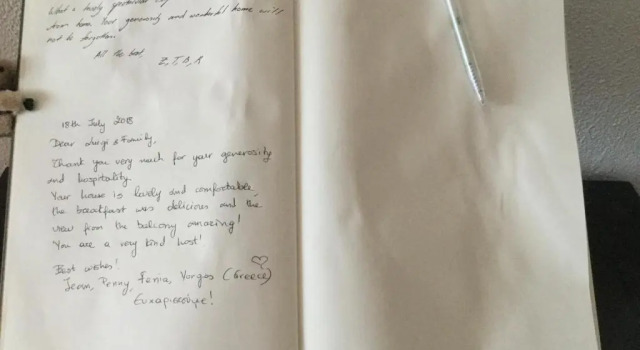 What a lovely
Your generosity and wonderful home will
not be forgotten
All the best,
Z, T, B, R
18th July 2018
Dear & Family,
Thank you very much for your generosity
and hospitality.
Your house is lovely and comfortable,
the breakfast was delicious and the
view from the balcony amazing!
You are a very kind host!
Best wishes!
Jean, Penny, Fenia, Yorgos (Greece)
Ευχαριστούμε!